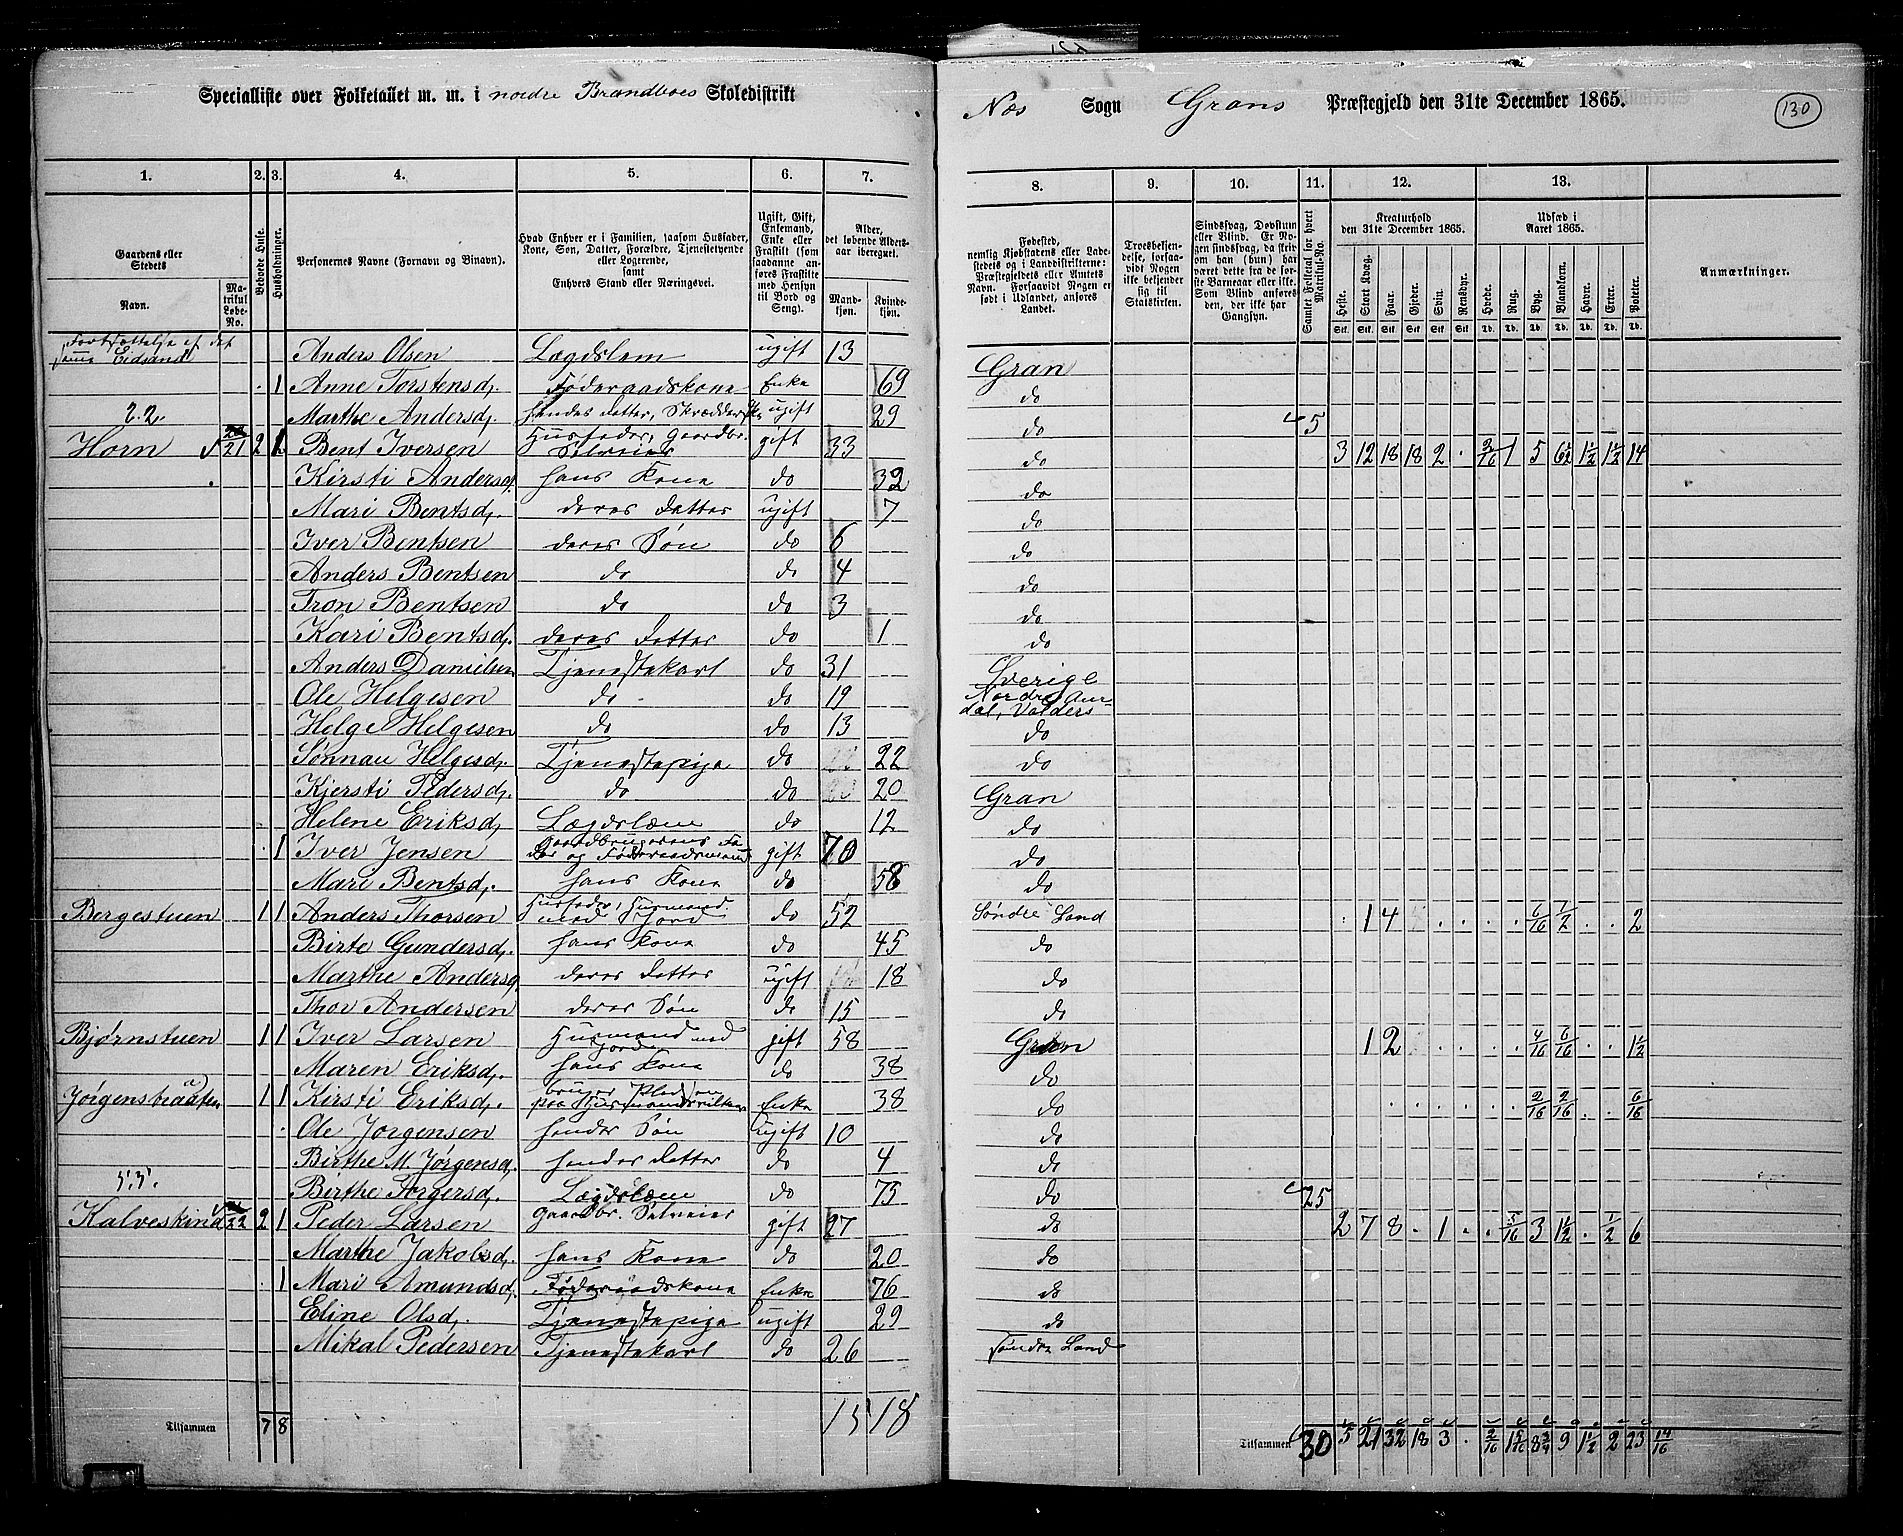 Specialliste over Folketallet m. m. i nordre Brandboes Skoledistrikt
Næs Sogn Grans Præstegjeld den 31te December 1865.
130
1. 2. 3. 4. 5. 6. 7. 8. 9. 10. 11. 12. 13.
Gaardens eller Stedets
Navn.
Matrikul Løbe-No.
Beboede Huse.
Husholdninger.
Personernes Navne (Fornavn og Binavn).
Hvad Enhver er i Familien, saasom Husfader, Kone, Søn, Datter, Forældre, Tjenestetyende eller Logerende, samt Enhvers Stand eller Næringsvei.
Ugift, Gift, Enkemand, Enke eller Fraskilt (som saadanne anføres Fraskilte med Hensyn til Bord og Seng).
Alder, det løbende Aldersaar iberegnet.
Mandkjøn.
Kvindekjøn.
Fødested, nemlig Kjøbstadens eller Ladestedets og i Landdistrikterne: Præstegjeldets eller Amtets Navn. Forsaavidt Nogen er født i Udlandet, anføres Landet.
Troesbekjendelse, forsaavidt Nogen ikke bekjender sig til Statskirken.
Sindssvag, Døvstum eller Blind. Er Nogen sindssvag, da skrives om han (hun) har været dette fra de første Barneaar eller ikke. Som Blind anføres den, der ikke har Gangsyn.
Samlet Folketal for hvert Matrikul-No.
Kreaturhold den 31te December 1865.
Heste. Stort Kvæg. Faar. Gjeder. Svin. Rensdyr.
Udsæd i Aaret 1865.
Hvede. Rug. Byg. Blandkorn. Havre. Erter. Poteter.
Anmærkninger.
Fortsættelse af det samme Eidsand Anders Olsen Lægdslem ugift 13 Gran
1 Anne Torstensd. Føderaadskone Enke 69 do
22 Marthe Andersd. hendes Datter, ugift 29 do 5
Horn 21 2 1 Bent Iversen Husfader, Gaardbr. Selveier gift 33 do 3 12 18 18 2 . 3/16 1 5 6½ 1½ 1½ 14
Kirsti Andersd. hans Kone do 32 do
Mari Bentsd. deres Datter ugift 7 do
Iver Bentsen deres Søn do 6 do
Anders Bentsen do do 4 do
Tron Bentsen do do 3 do
Kari Bentsd. deres Datter do 1 do
Anders Danielsen Tjenestekarl do 31 Sverige
Ole Helgesen do do 19 Nordre Aurdal, Valders
Helge Helgesen do do 13 do
Sønnau Helgesd. Tjenestepige do 22 do
Kjersti Pedersd. do do 20 Gran
Helene Eriksd. Lægdslem do 12 do
1 Iver Jensen Gaardbrugerens Fader og Føderaadsmand gift 70 do
Mari Bentsd. hans Kone do 58 do
Bergestuen 1 1 Anders Thorsen Husfader, Husmand med Jord do 52 Søndre Land . 1 4 . . . . . 6/16 ½ . . 2
Birte Gundersd. hans Kone do 45 do
Marthe Andersd. deres Datter ugift 18 do
Thor Andersen deres Søn do 15 do
Bjørnstuen 1 1 Iver Larsen Husmand med Jord gift 58 Gran 1 2 . . . . . 4/16 6/16 . . 1½
Maren Eriksd. hans Kone do 38 do
Jørgenstraaten 1 1 Kirsti Eriksd. bruger Pladsen paa Husmandsvilkaar Enke 38 do . . . . . . . . 2/16 2/16 . . 6/16
Ole Jørgensen hendes Søn ugift 10 do
Birthe M. Jørgensd. hendes Datter do 4 do
55. Birthe Torgersd. Lægdslem do 75 do 25
Kalveskind 22 2 1 Peder Larsen Gaardbr. Selveier gift 27 do 2 7 8 . 1 . . 5/16 3 1½ . ½ 6
Marthe Jakobsd. hans Kone do 20 do
1 Mari Amundsd. Føderaadskone Enke 76 do
Eline Olsd. Tjenestepige ugift 29 do
Mikal Pedersen Tjenestekarl do 26 Søndre Land
Tilsammen 7 8 15 18
Tilsammen 30 5 21 32 18 3 . 3/16 1 5/16 8¾ 9 1½ 2 23 14/16